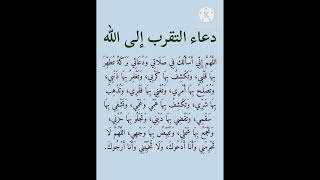 دعاء التقرب إلى الله
اللَّهُمَّ إِنِّي أَسْأَلُكَ فِي صَلَاتِي وَدُعَائِي بَرَكَةً تُطَهِّرُ
بِهَا قَلْبِي، وَتَكْشِفُ بِهَا كُرَبِي، وَتَغْفِرُ بِهَا ذَنْبِي،
وَتُصْلِحُ بِهَا أَمْرِي، وَتُغْنِي بِهَا فَقْرِي، وَتُذْهِبُ
بِهَا شَرِّي، وَتَكْشِفُ بِهَا هَمِّي وَغَمِّي، وَتَشْفِي بِهَا
سَقَمِي، وَتَقْضِي بِهَا دَيْنِي، وَتَجْلُو بِهَا حُزْنِي،
وَتَجْمَعُ بِهَا شَمْلِي، وَتُبَيِّضُ بِهَا وَجْهِي، اللَّهُمَّ لَا
تَحْرِمْنِي وَأَنَا أَدْعُوكَ، وَلَا تُخَيِّبْنِي وَأَنَا أَرْجُوكَ.